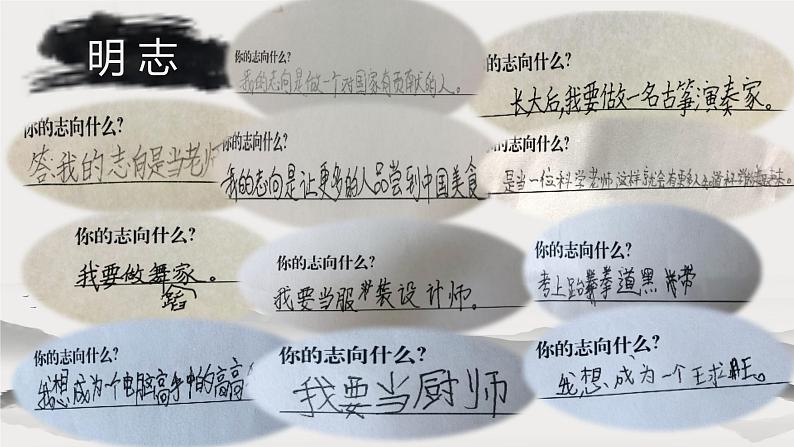 明志
你的志向什么?
我的志向是做一个对国家有贡献的人。
的志向什么?
长大后,我要做一名古筝演奏家。
你的志向什么?
答:我的志向是当老师
你的志向什么?
我的志向是让更多的人品尝到中国美食
的志向什么?
是当一位科学老师,这样就会有更多人
你的志向什么?
我要做舞家。
蹈
你的志向什么?
我要当服装设计师。
你的志向什么?
考上跆拳道黑带
你的志向什么?
我想成为一个电脑高手中的高高
你的志向什么?
我要当厨师
你的志向什么?
我想成为一个王求王。